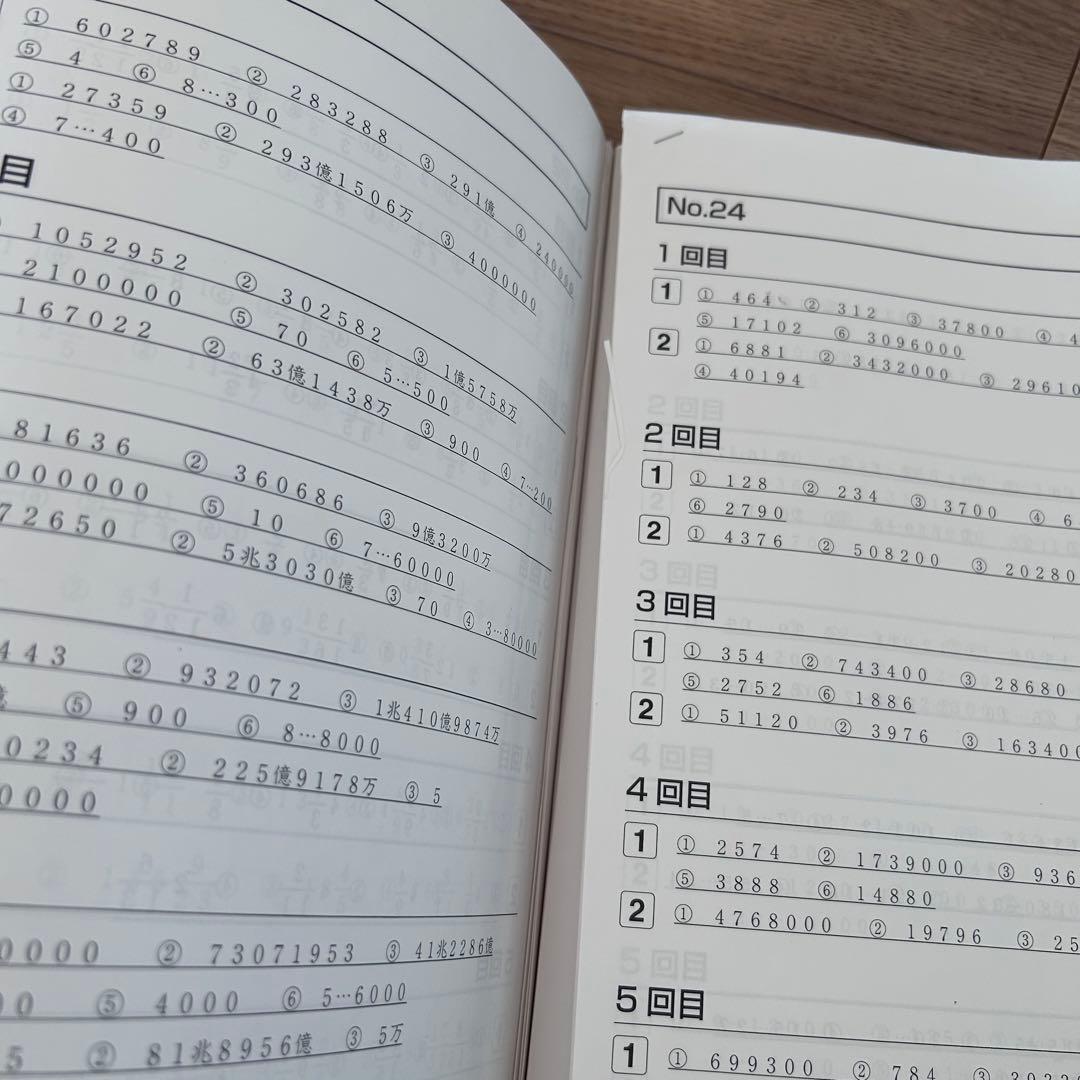 ① 602789 ② 283288 ③ 291億 ④ 240000
⑤ 4 ⑥ 8…300
① 27359 ② 293億1506万 ③ 4000000
④ 7…400
目
1052952 ② 302582 ③ 1億5758万
2100000 ⑤ 70 ⑥ 5…500
167022 ② 63億1438万 ③ 900 ④ 7…200
81636 ② 360686 ③ 9億3200万
000000 ⑤ 10 ⑥ 7…60000
72650 ② 5兆3030億 ③ 70 ④ 3…80000
443 ② 932072 ③ 1兆410億9874万
⑤ 900 ⑥ 8…8000
0234 ② 225億9178万 ③ 5
0000
0000 ② 73071953 ③ 41兆2286億
00 ⑤ 4000 ⑥ 5…6000
5 ② 81兆8956億 ③ 5万
No.24
1回目
1 ① 464 ② 312 ③ 37800 ④ 4
⑤ 17102 ⑥ 3096000
2 ① 6881 ② 3432000 ③ 29610
④ 40194
2回目
1 ① 128 ② 234 ③ 3700 ④ 6
⑥ 2790
2 ① 4376 ② 508200 ③ 20280
3回目
1 ① 354 ② 743400 ③ 28680
⑤ 2752 ⑥ 1886
2 ① 51120 ② 3976 ③ 163400
4回目
1 ① 2574 ② 1739000 ③ 936
⑤ 3888 ⑥ 14880
2 ① 4768000 ② 19796 ③ 25
5回目
1 ① 699300 ② 784 ③